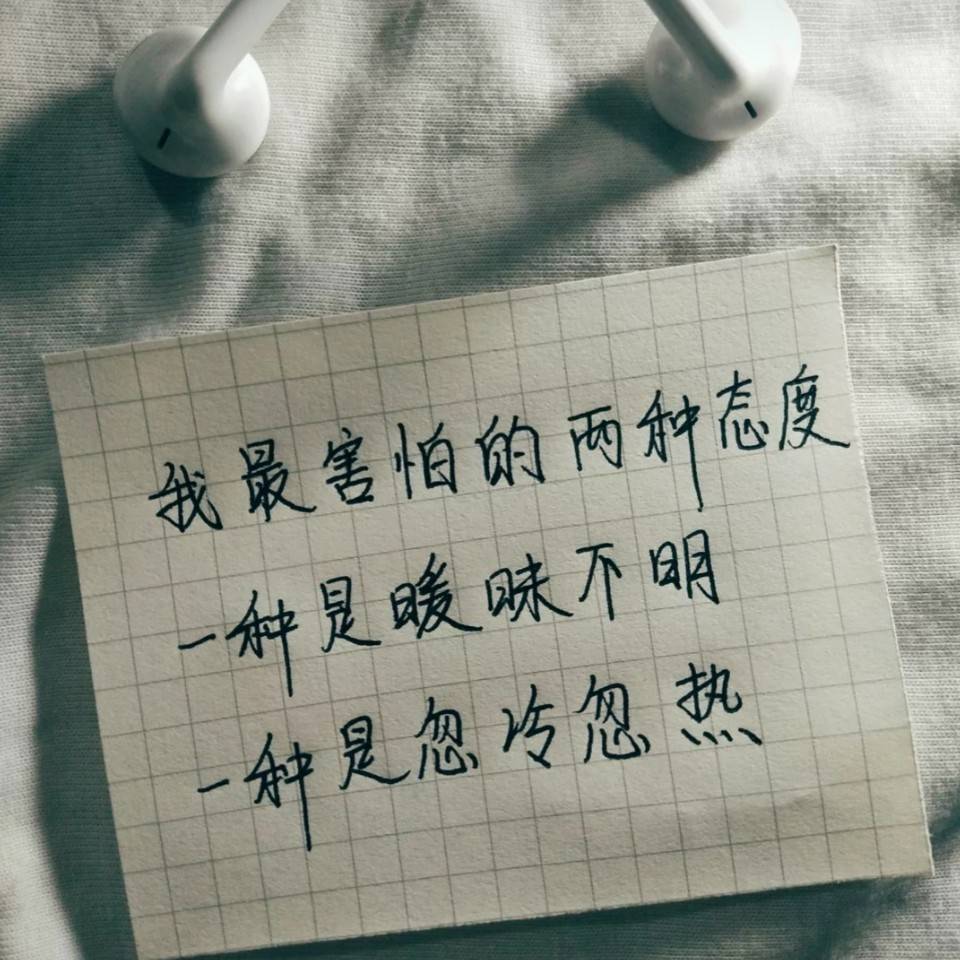 我最害怕的两种态度
一种是暧昧不明
一种是忽冷忽热